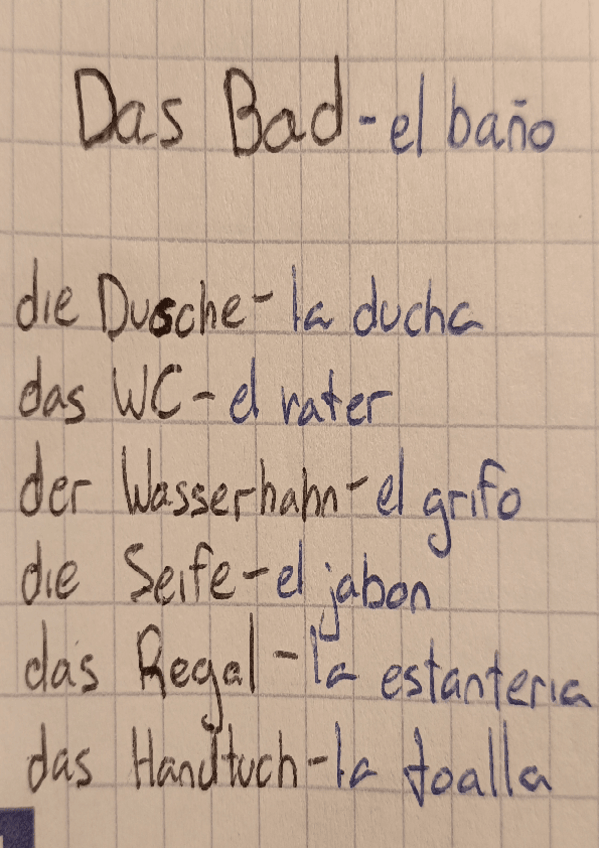 Das Bad - el baño
die Dusche - la ducha
das WC - el vater
der Wasserhahn - el grifo
die Seife - el jabon
das Regal - la estanteria
das Handtuch - la toalla